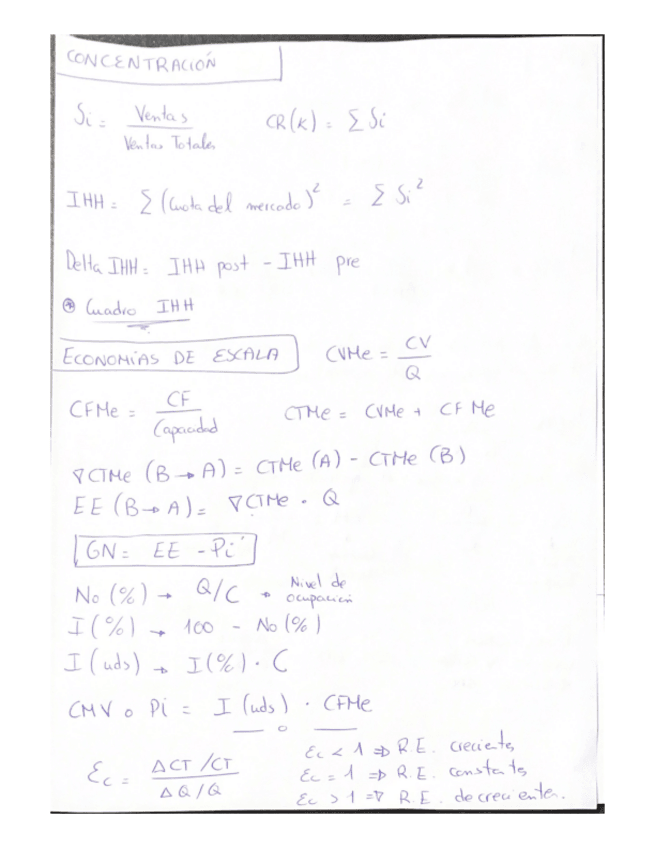 CONCENTRACIÓN
Si = Ventas / Ventas Totales    CR(K) = ∑ Si
IHH = ∑ (Cuota del mercado)² = ∑ Si²
Delta IHH = IHH post - IHH pre
⊛ Cuadro IHH
ECONOMÍAS DE ESCALA    CVMe = CV / Q
CFMe = CF / Capacidad    CTMe = CVMe + CFMe
∇CTMe (B → A) = CTMe (A) - CTMe (B)
EE (B → A) = ∇CTMe · Q
GN = EE - Pi
No (%) → Q/C → Nivel de ocupación
I (%) → 100 - No (%)
I (uds) → I(%) · C
CMV o Pi = I (uds) · CFMe
Ec = ΔCT/CT / ΔQ/Q
Ec < 1 ⇒ R.E. crecientes
Ec = 1 ⇒ R.E. constantes
Ec > 1 ⇒ R.E. decrecientes.